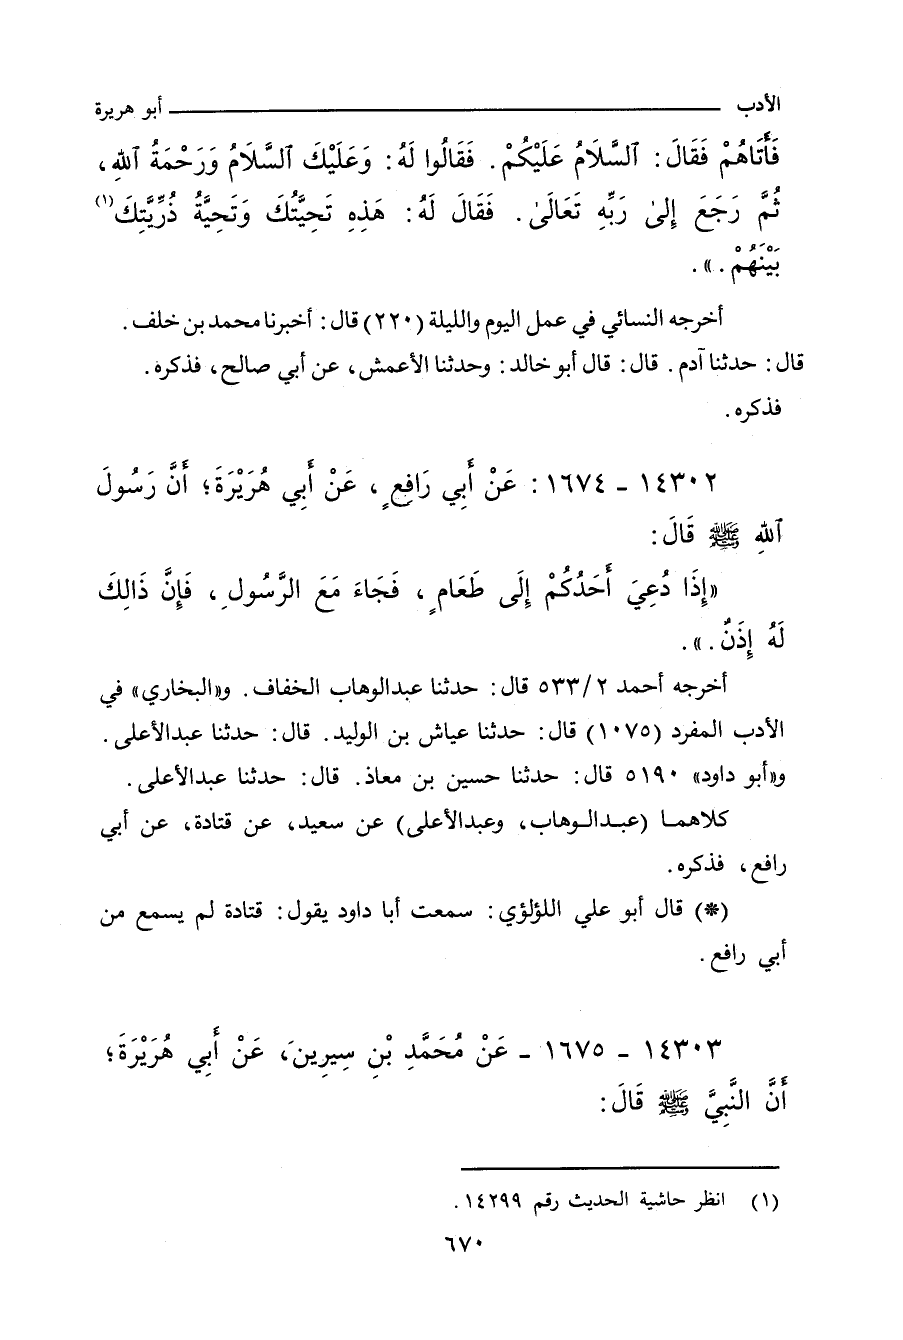 الأدب ــــــ أبو هريرة
فَأَتَاهُمْ فَقَالَ : ٱلسَّلَامُ عَلَيْكُمْ . فَقَالُوا لَهُ : وَعَلَيْكَ ٱلسَّلَامُ وَرَحْمَةُ ٱللهِ ،
ثُمَّ رَجَعَ إِلىٰ رَبِّهِ تَعَالَىٰ . فَقَالَ لَهُ : هَذِهِ تَحِيَّتُكَ وَتَحِيَّةُ ذُرِّيَّتِكَ(١)
بَيْنَهُمْ . » .
أخرجه النسائي في عمل اليوم والليلة (٢٢٠) قال : أخبرنا محمد بن خلف .
قال : حدثنا آدم . قال : قال أبو خالد : وحدثنا الأعمش ، عن أبي صالح ، فذكره .
فذكره .
١٤٣٠٢ ـ ١٦٧٤ : عَنْ أَبِي رَافِعٍ ، عَنْ أَبِي هُرَيْرَةَ ؛ أَنَّ رَسُولَ
ٱللهِ ﷺ قَالَ :
«إِذَا دُعِيَ أَحَدُكُمْ إِلَى طَعَامٍ ، فَجَاءَ مَعَ الرَّسُولِ ، فَإِنَّ ذَالِكَ
لَهُ إِذَنٌ . » .
أخرجه أحمد ٥٣٣/٢ قال : حدثنا عبدالوهاب الخفاف . و«البخاري» في
الأدب المفرد (١٠٧٥) قال : حدثنا عياش بن الوليد . قال : حدثنا عبدالأعلى .
و«أبو داود» ٥١٩٠ قال : حدثنا حسين بن معاذ . قال : حدثنا عبدالأعلى .
كلاهما (عبدالوهاب ، وعبدالأعلى) عن سعيد ، عن قتادة ، عن أبي
رافع ، فذكره .
(*) قال أبو علي اللؤلؤي : سمعت أبا داود يقول : قتادة لم يسمع من
أبي رافع .
١٤٣٠٣ ـ ١٦٧٥ ـ عَنْ مُحَمَّدِ بْنِ سِيرِينَ ، عَنْ أَبِي هُرَيْرَةَ ؛
أَنَّ النَّبِيَّ ﷺ قَالَ :
(١) انظر حاشية الحديث رقم ١٤٢٩٩ .
٦٧٠